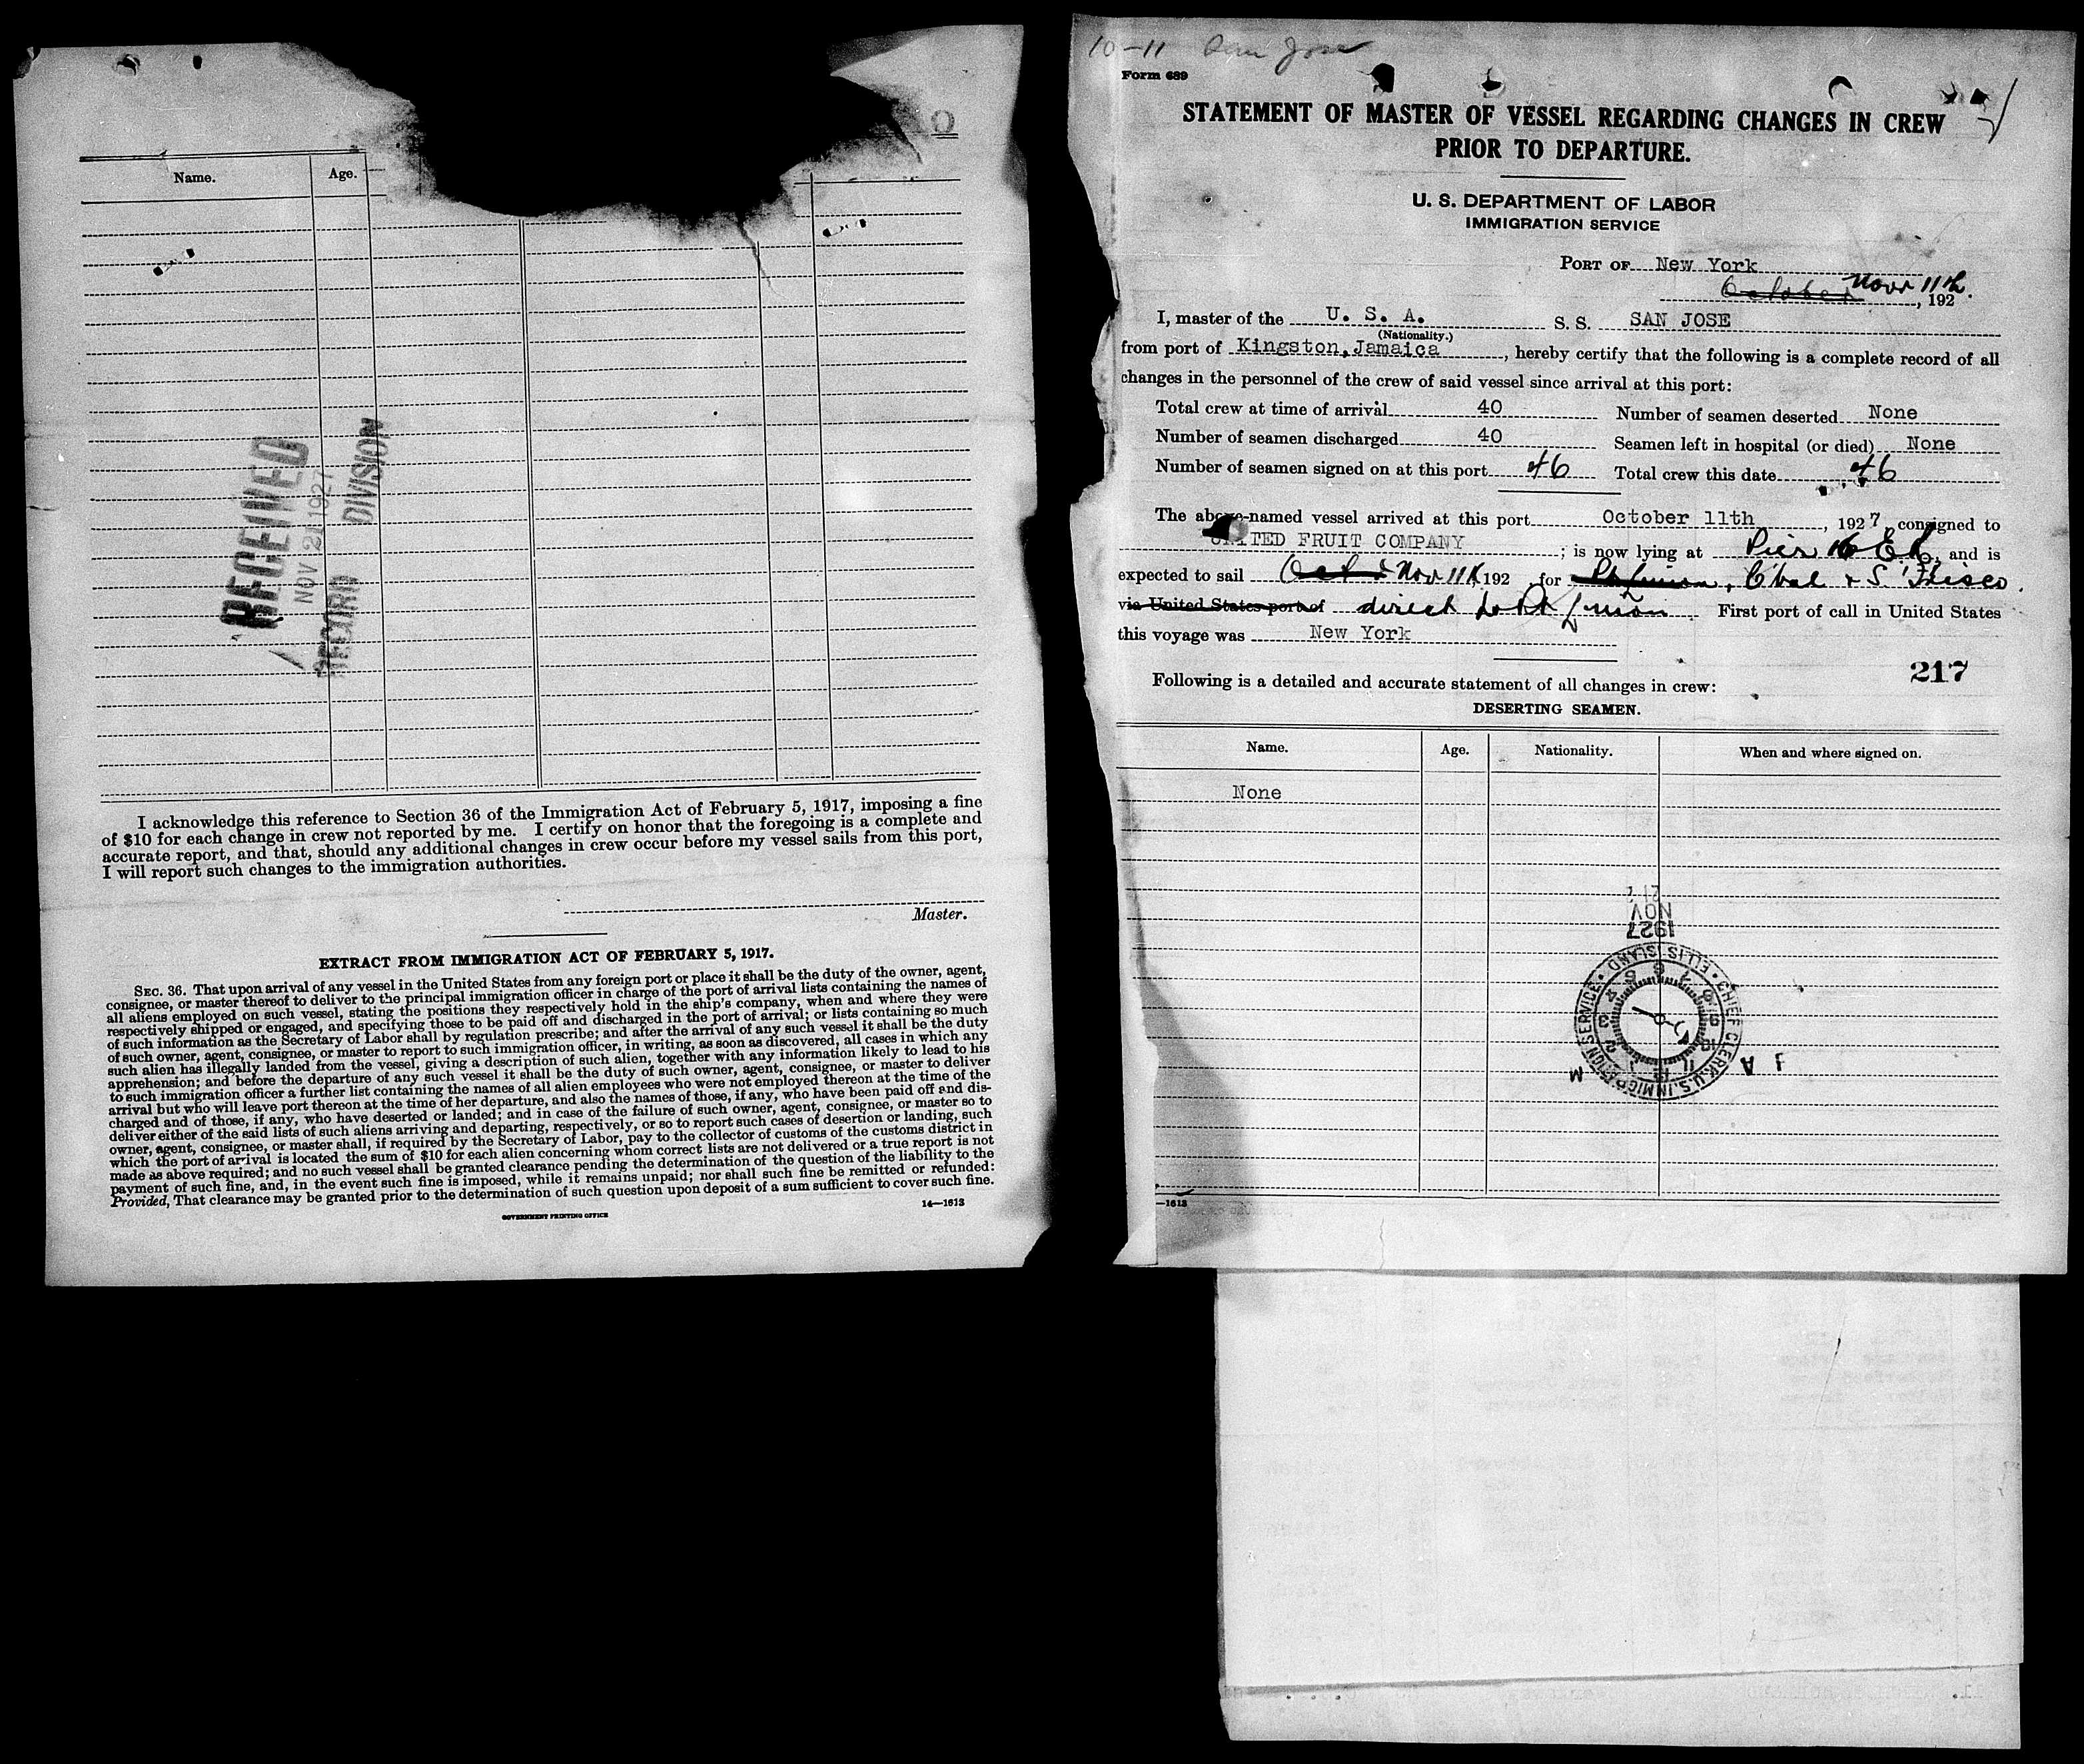 Name.
Age.
RECEIVED
NOV 21 1927
RECORD DIVISION
I acknowledge this reference to Section 36 of the Immigration Act of February 5, 1917, imposing a fine
of $10 for each change in crew not reported by me. I certify on honor that the foregoing is a complete and
accurate report, and that, should any additional changes in crew occur before my vessel sails from this port,
I will report such changes to the immigration authorities.
Master.
EXTRACT FROM IMMIGRATION ACT OF FEBRUARY 5, 1917.
SEC. 36. That upon arrival of any vessel in the United States from any foreign port or place it shall be the duty of the owner, agent,
consignee, or master thereof to deliver to the principal immigration officer in charge of the port of arrival lists containing the names of
all aliens employed on such vessel, stating the positions they respectively hold in the ship's company, when and where they were
respectively shipped or engaged, and specifying those to be paid off and discharged in the port of arrival; or lists containing so much
of such information as the Secretary of Labor shall by regulation prescribe; and after the arrival of any such vessel it shall be the duty
of such owner, agent, consignee, or master to report to such immigration officer, in writing, as soon as discovered, all cases in which any
such alien has illegally landed from the vessel, giving a description of such alien, together with any information likely to lead to his
apprehension; and before the departure of any such vessel it shall be the duty of such owner, agent, consignee, or master to deliver
to such immigration officer a further list containing the names of all alien employees who were not employed thereon at the time of the
arrival but who will leave port thereon at the time of her departure, and also the names of those, if any, who have been paid off and dis-
charged and of those, if any, who have deserted or landed; and in case of the failure of such owner, agent, consignee, or master so to
deliver either of the said lists of such aliens arriving and departing, respectively, or so to report such cases of desertion or landing, such
owner, agent, consignee, or master shall, if required by the Secretary of Labor, pay to the collector of customs of the customs district in
which the port of arrival is located the sum of $10 for each alien concerning whom correct lists are not delivered or a true report is not
made as above required; and no such vessel shall be granted clearance pending the determination of the question of the liability to the
payment of such fine, and, in the event such fine is imposed, while it remains unpaid; nor shall such fine be remitted or refunded:
Provided, That clearance may be granted prior to the determination of such question upon deposit of a sum sufficient to cover such fine.
14—1613
GOVERNMENT PRINTING OFFICE
10-11 San Jose
Form 689
STATEMENT OF MASTER OF VESSEL REGARDING CHANGES IN CREW
PRIOR TO DEPARTURE.
U. S. DEPARTMENT OF LABOR
IMMIGRATION SERVICE
PORT OF New York
October Novr 11th, 192 .
I, master of the U. S. A. S. S. SAN JOSE
(Nationality.)
from port of Kingston, Jamaica, hereby certify that the following is a complete record of all
changes in the personnel of the crew of said vessel since arrival at this port:
Total crew at time of arrival 40 Number of seamen deserted None
Number of seamen discharged 40 Seamen left in hospital (or died) None
Number of seamen signed on at this port 46 Total crew this date 46
The above-named vessel arrived at this port October 11th, 1927, consigned to
UNITED FRUIT COMPANY; is now lying at Pier 16 E R, and is
expected to sail Oct Nov 11th 192 , for Pt Limon, Cbal & S. Frisco.
via United States port of direct to Pt Limon. First port of call in United States
this voyage was New York
217
Following is a detailed and accurate statement of all changes in crew:
DESERTING SEAMEN.
Name. Age. Nationality. When and where signed on.
None
NOV
1927
ELLIS ISLAND • CHIEF CLERK U.S. IMMIGRATION SERVICE •
—1613